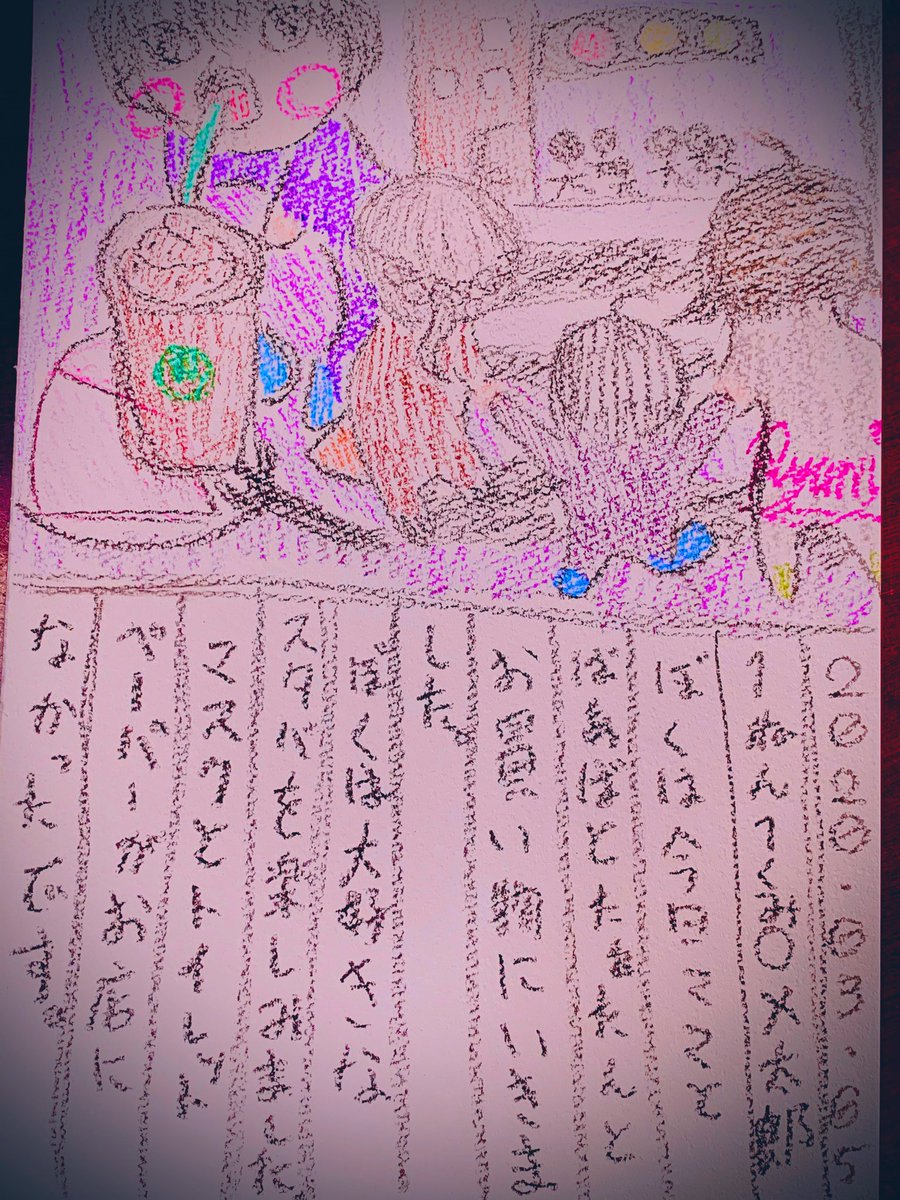 2020.03.05
1ねん1くみ〇×太郎
ぼくは今日ママと
ばあばとたまたんと
お買い物にいきま
した。
ぼくは大好きな
スタバを楽しみました
マスクとトイレ
ペーパーがお店に
なかったです。